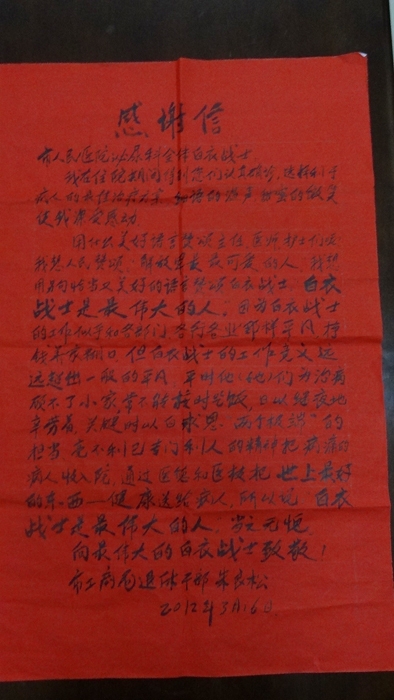 感谢信
市人民医院泌尿科全体白衣战士
我在住院期间看到您们认真
病人的最佳治疗方案 的微笑
使我深受感动
用什么美好语言赞颂主任、医师护士们呢
我想人民赞颂 解放军是最可爱的人，我想
用 恰当又美好的语言赞颂白衣战士，白衣
战士是最伟大的人。因为白衣战士
的工作似乎和各部门、各行各业那样平凡
但白衣战士的工作意义远
远超出一般的平凡 平时他（她）们为治病
顾不了小家，常不能按时 饭，日以继夜地
辛劳着，关键时以白求恩“两个极端”的
担当 毫不利己专门利人的精神把病痛的
病人收入院，通过医德和医技把世上最好
的东西——健康送给病人，所以说 白衣
战士是最伟大的人，当之无愧
向最伟大的白衣战士致敬！
市工商局退休干部 朱 松
2012年3月16日